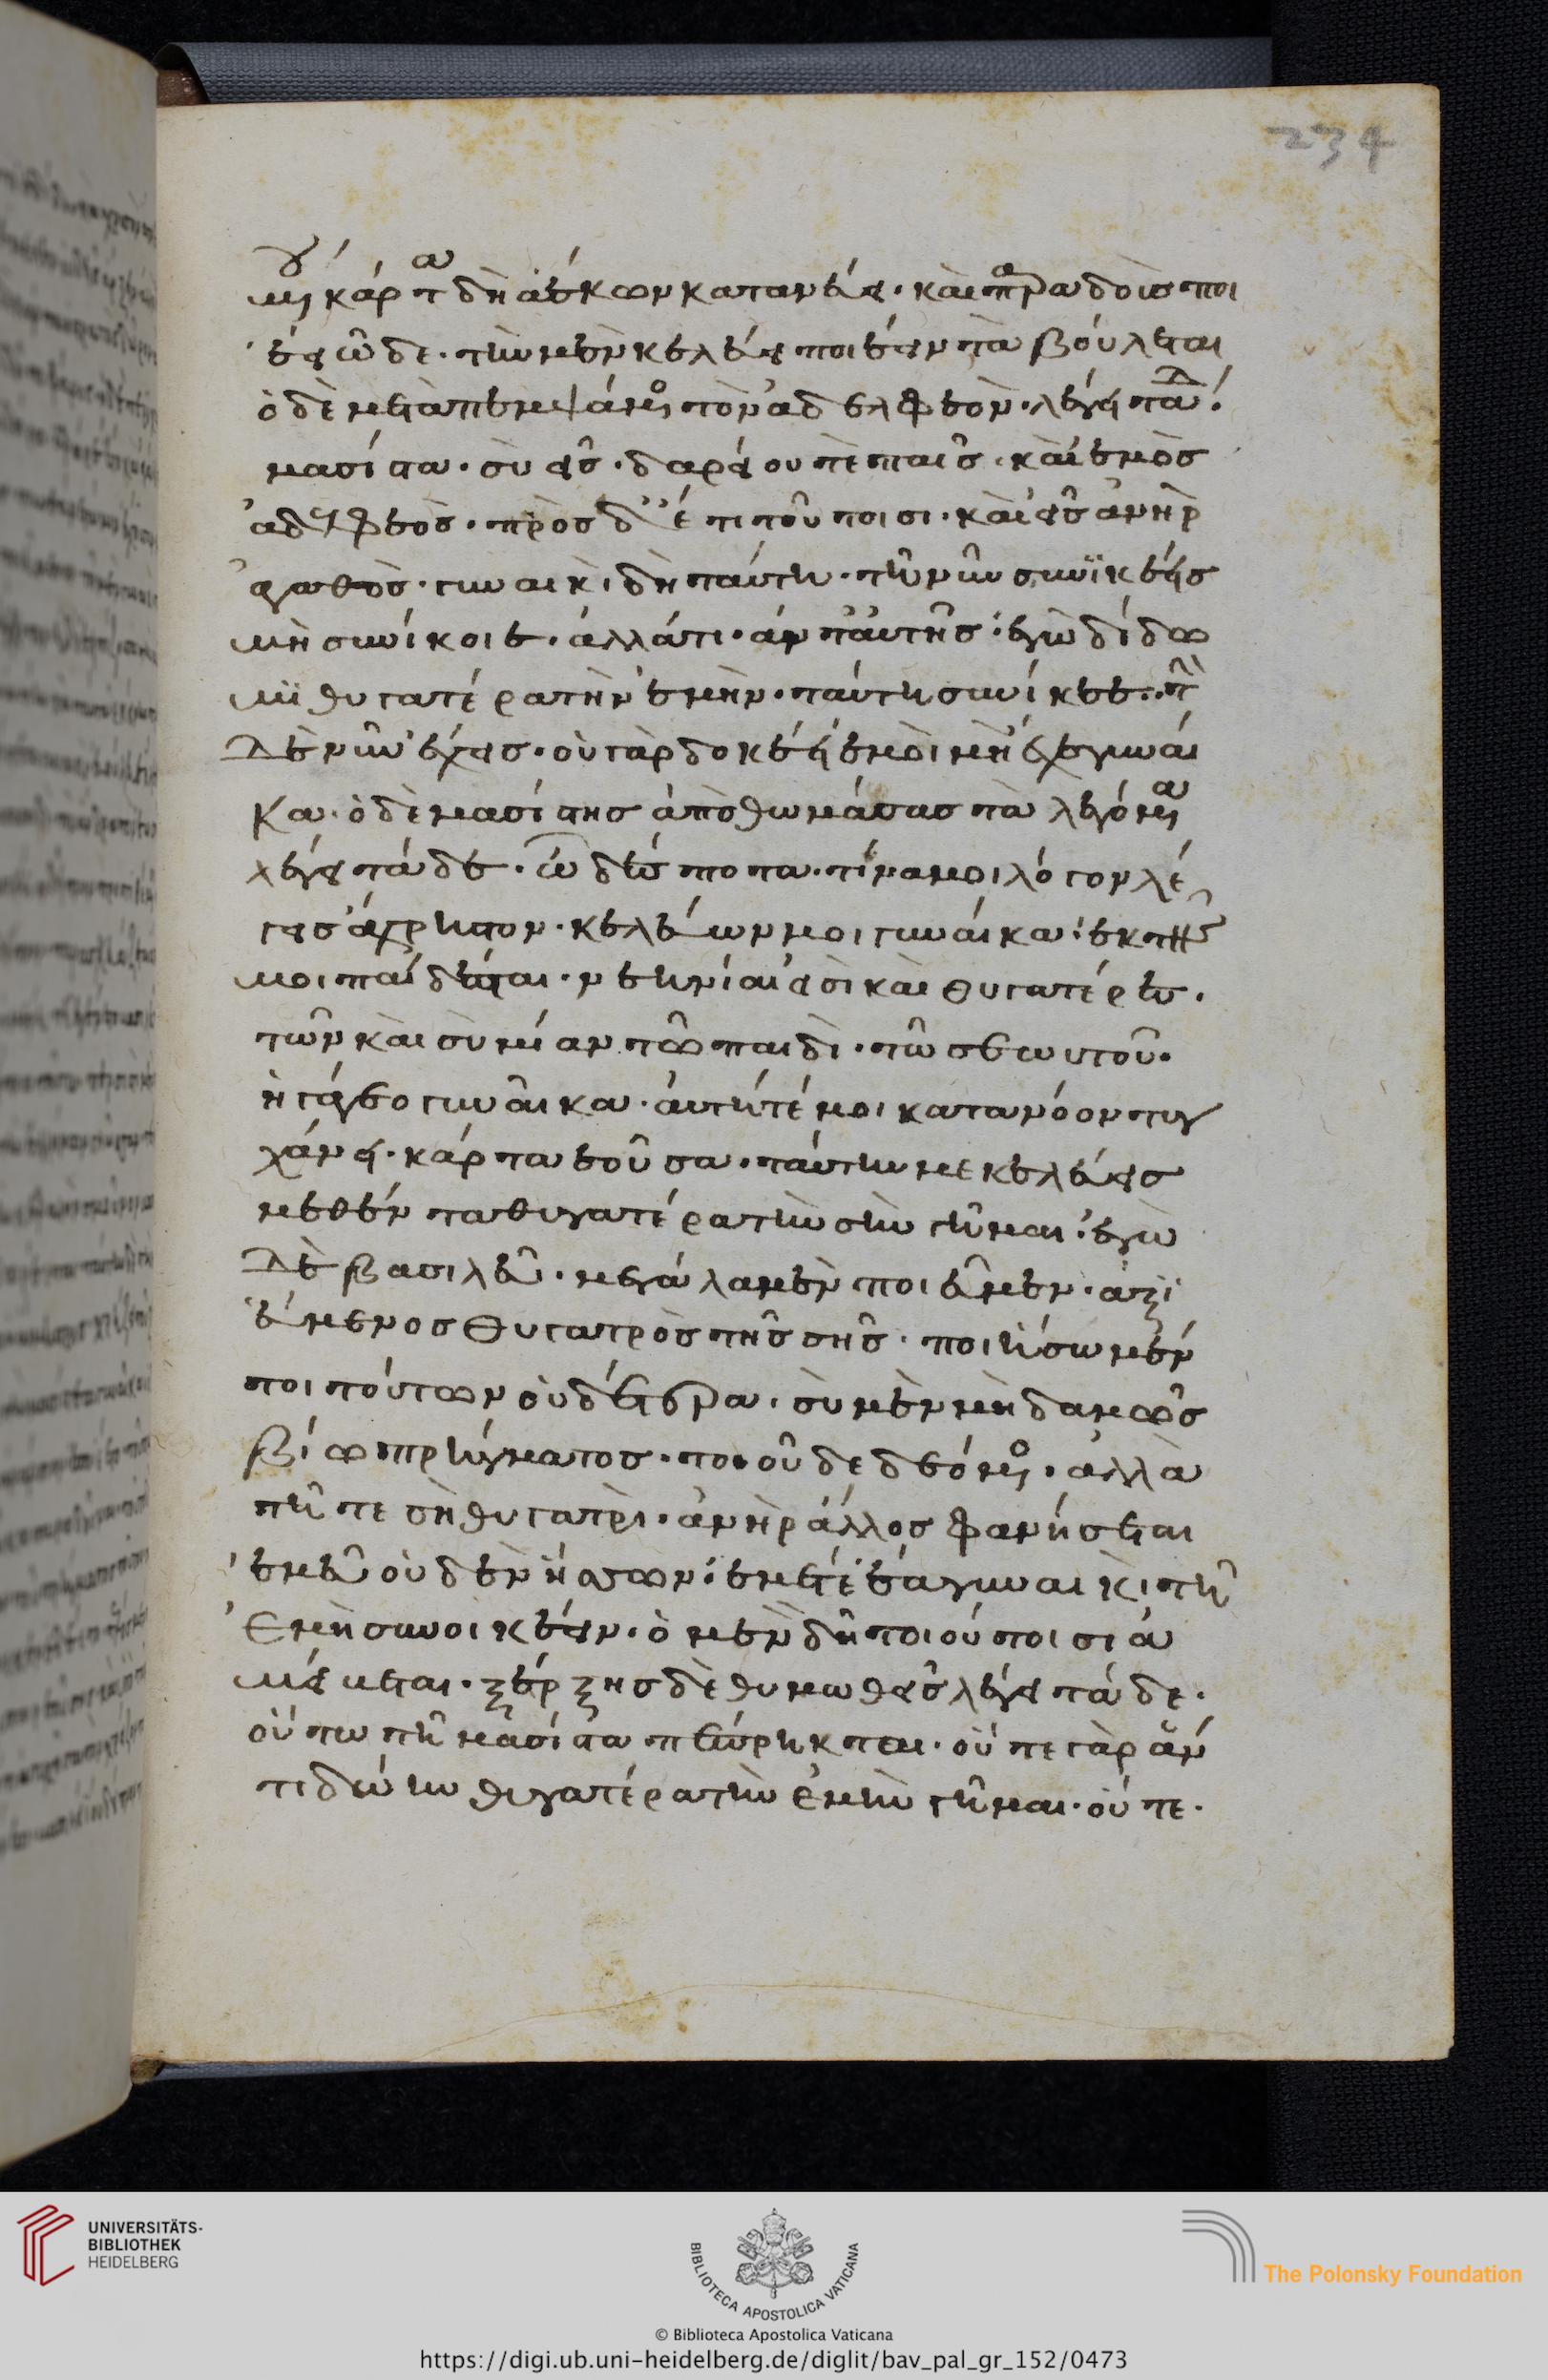 μ(εν) κάρτα δὴ ἀέκων κατανεύει· καὶ παραδοὶσ ποι
έει ὧδε· τὴν μὲν κελεύει ποιέειν τὰ βούλεται
ὁ δὲ μεταπεμψάμενος τὸν ἀδελφεὸν· λέγει τάδ·
μασίστα· σὺ εἶσ· δαρείου τὲ παῖσ· καὶ ἐμὸσ
ἀδελφεὸσ· πρὸσ δ' ἔτι τούτοισι· καὶ εἶσ ἀνὴρ
ἀγαθὸσ· γυναικὶ δὴ ταύτη· τῆ νῦν συνϊκέεισ
μὴ συνίκοιε· ἀλλά τι· ἀντ' αὐτῆσ· ἐγὼ δίδω
μϊ θυγατέρα τὴν ἐμὴν· ταύτη συνίκεε· τὴν
δὲ νῦν ἔχεισ· οὐ γὰρ δοκέει ἐμοὶ μὴ ἔχε γυναῖ
κα· ὁ δὲ μασίστησ ἀπὸθωμάσασ τὰ λεγόμενα
λέγει τάδε· ὦ δέσποτα· τίνα μοι λόγον λέ
γεισ ἄχρηστον· κελεύων μοι γυναίκα· ἐκ τῆσ
μοι παίδεσται· νεηνίαι εἰσὶ καὶ θυγατέρεσ·
τῶν καὶ σὺ μίαν τῶ παιδὶ· τῶ σεωυτοῦ·
ἠγάγεο γυναῖκα· αὐτή τέ μοι κατανόον τυγ
χάνει· κάρτα ἐοῦσα· ταύτην με κελεύεισ
μεθέντα θυγατέρα τὴν σὴν γῆμαι· ἐγὼ
δὲ βασιλεῦ· μεγάλα μὲν ποιεῦμεν· ἀξι
εύμενοσ θυγατρὸσ τῆσ σῆσ· ποιήσω μέν
τοι τούτων οὐδέτερα· σὺ μὲν μὴδαμῶσ
βίω πρήγματοσ· τοιοῦδε δεόμενος· ἀλλὰ
τῆ τε σῆ θυγατρὶ· ἀνὴρ ἄλλοσ φανήσεται
ἐμεῦ οὐδὲν ἥσσων· ἐμέ τὲ ἔα γυναικὶ τῆ
ἐμῆ συνοικέειν· ὁ μὲν δὴ τοιούτοισι ἀ
μείβεται· ξέρξησ δὲ θυμωθεῖσ λέγει τάδε·
οὕτω τῆ μασίστα πεπρηκται· οὔτε γὰρ ἄν
τι δώην θυγατέρα τὴν ἐμὴν γῆμαι· οὔτε·
234
UNIVERSITÄTS-
BIBLIOTHEK
HEIDELBERG
BIBLIOTECA APOSTOLICA VATICANA
The Polonsky Foundation
© Biblioteca Apostolica Vaticana
https://digi.ub.uni-heidelberg.de/diglit/bav_pal_gr_152/0473